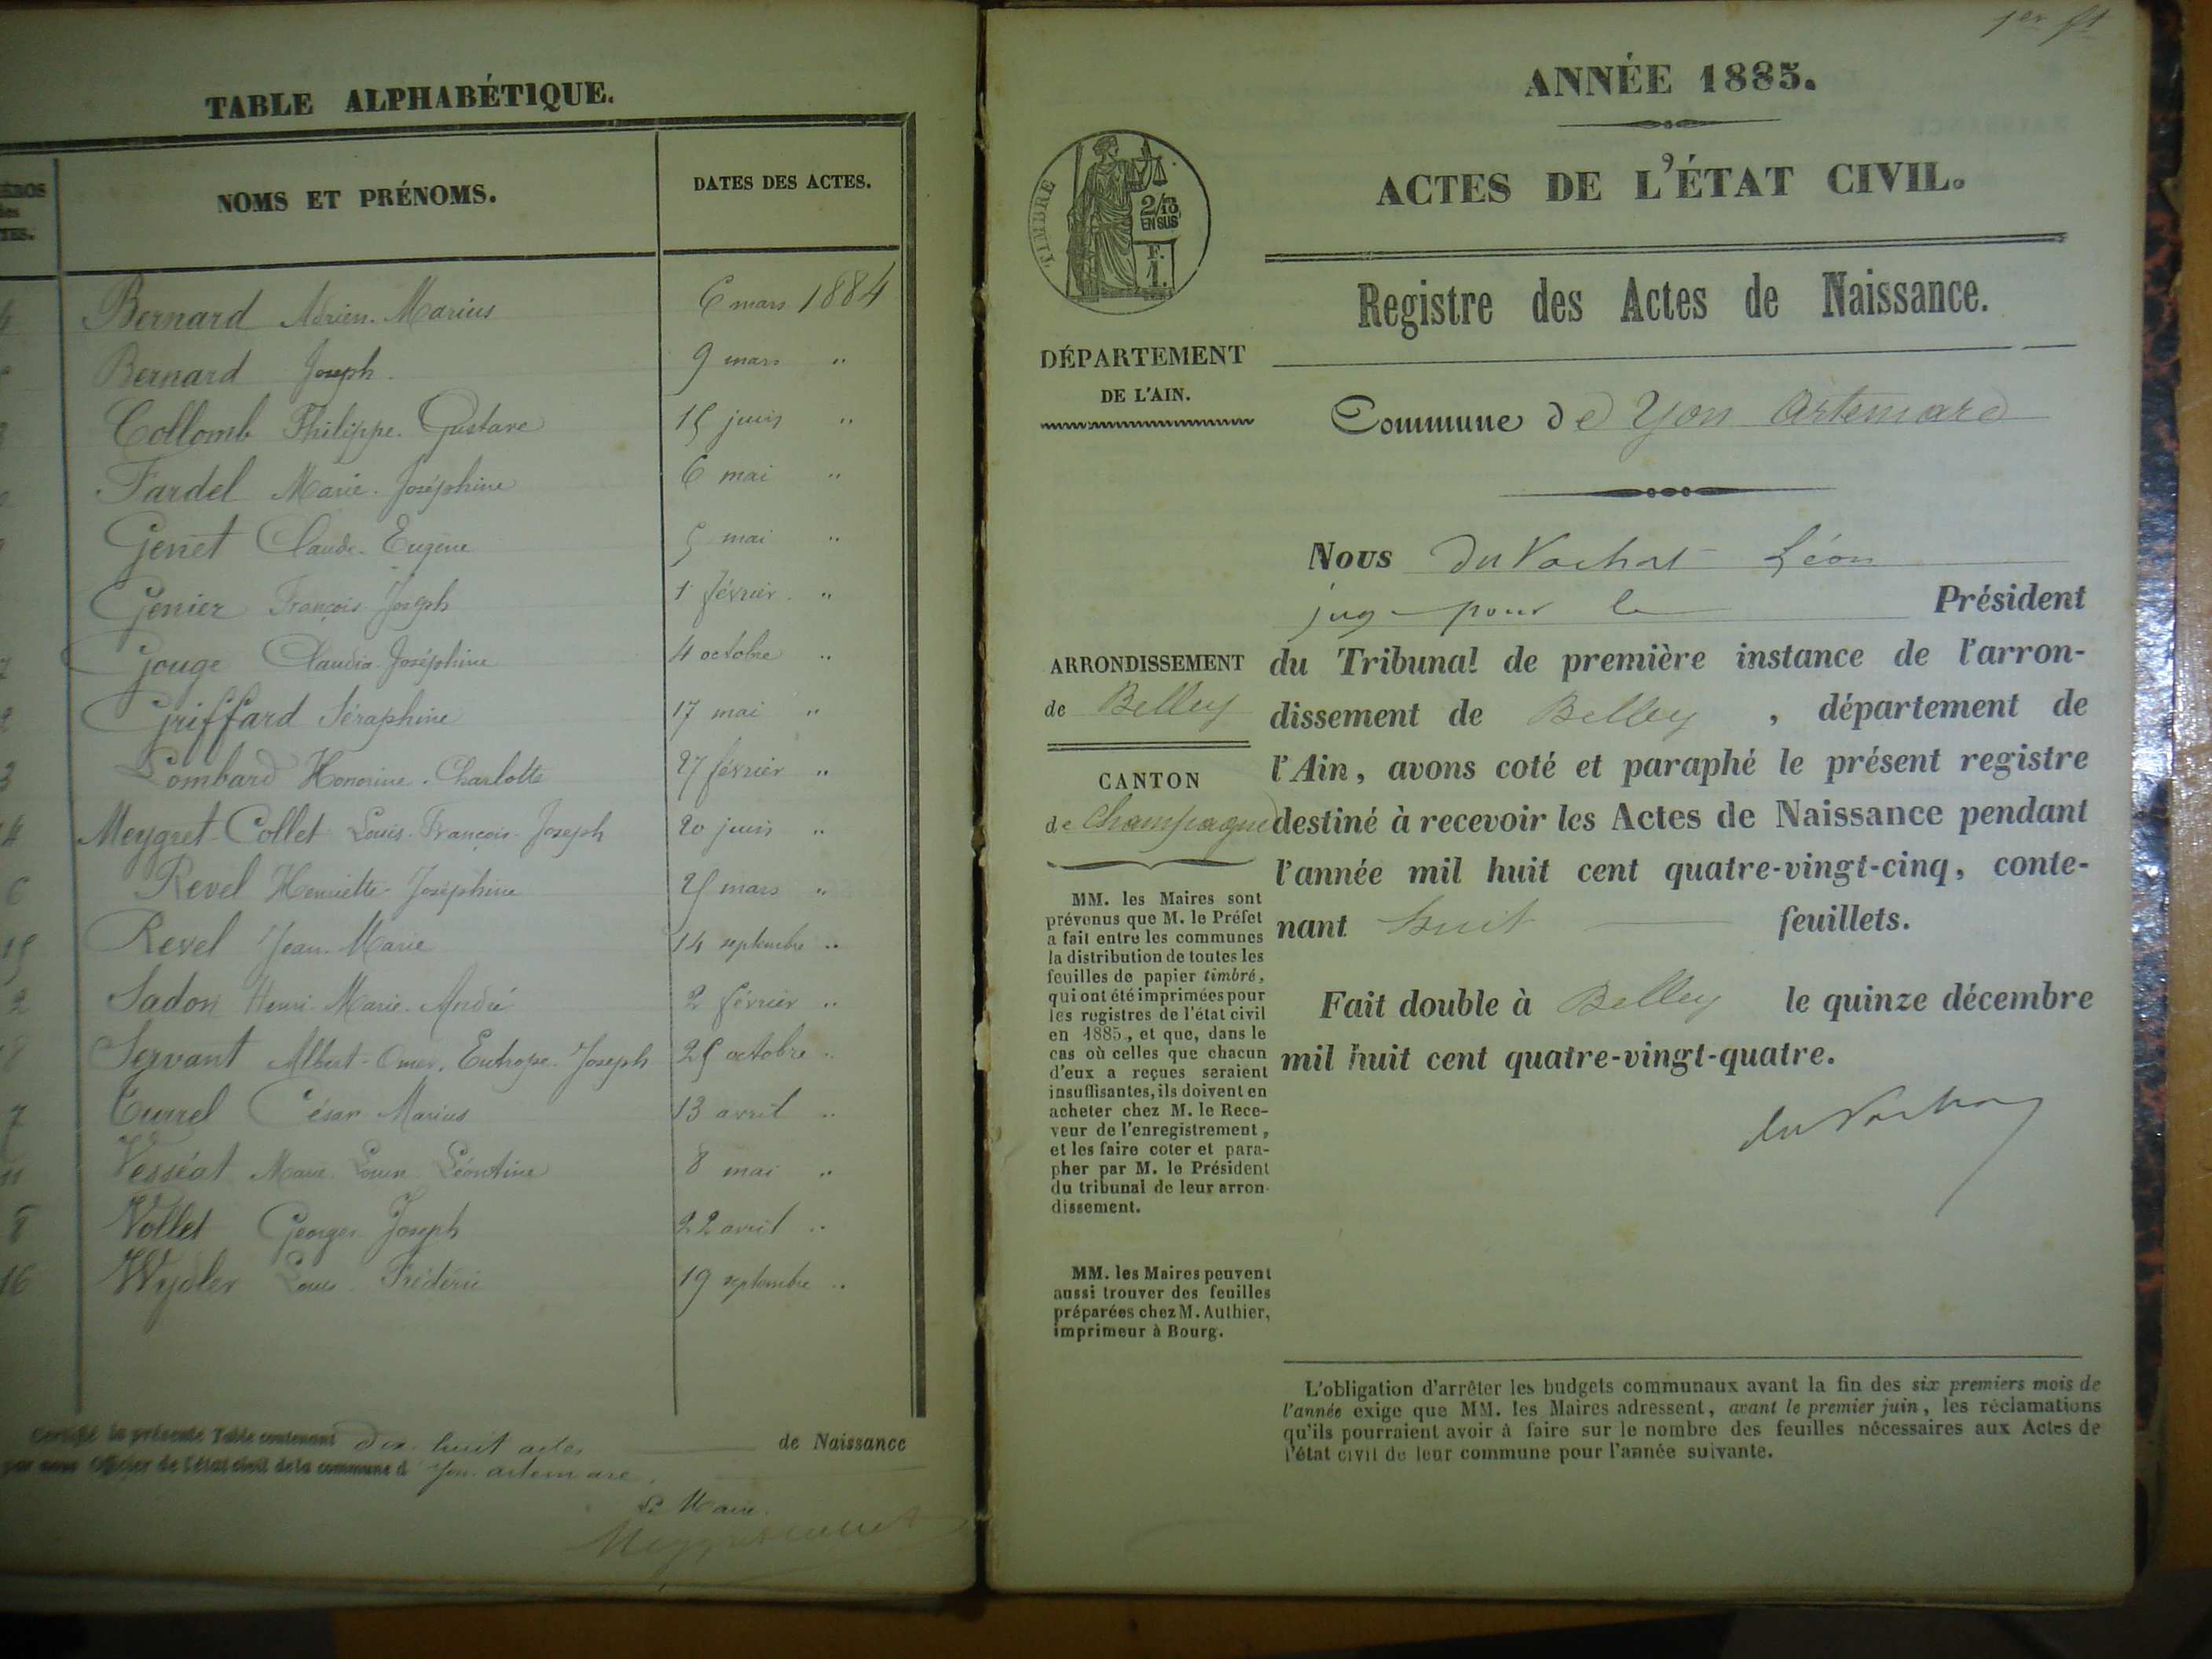 TABLE ALPHABÉTIQUE.
NOMS ET PRÉNOMS.
DATES DES ACTES.
Bernard Adrien-Marius 6 mars 1884
Bernard Joseph. 9 mars "
Collomb Philippe-Gustave 15 juin "
Fardel Marie-Joséphine 6 mai "
Genet Claude-Eugène 5 mai "
Genier François-Joseph 1 février "
7 Gouge Claudia-Joséphine 4 octobre "
2 Griffard Séraphine 17 mai "
3 Lombard Honorine-Charlotte 27 février "
4 Meygret-Collet Louis-François-Joseph 20 juin "
6 Revel Henriette-Joséphine 25 mars "
15 Revel Jean-Marie 14 septembre "
2 Sadon Henri-Marie-André 2 février "
8 Servant Albert-Omer-Eutrope-Joseph 25 octobre "
7 César-Marius 13 avril "
11 Vesséat Marie Léontine 8 mai "
8 Vollet Georges Joseph 22 avril "
16 Wydler Louis-Frédéric 19 septembre "
Certifié la présente Table contenant dix-huit actes de Naissance
par nous Officier de l'état civil de la commune d'Yon-artemare.
Le Maire
Meygretcollet
1er ft
ANNÉE 1885.
ACTES DE L'ÉTAT CIVIL.
TIMBRE
2/10
EN SUS
F.
1.
Registre des Actes de Naissance.
DÉPARTEMENT
DE L'AIN.
Commune de Yon Artemare
Nous Du Vachat Léon
juge pour le Président
du Tribunal de première instance de l'arron-
dissement de Belley, département de
l'Ain, avons coté et paraphé le présent registre
destiné à recevoir les Actes de Naissance pendant
l'année mil huit cent quatre-vingt-cinq, conte-
nant huit feuillets.
Fait double à Belley le quinze décembre
mil huit cent quatre-vingt-quatre.
du Vachat
ARRONDISSEMENT
de Belley
CANTON
de Champagne
MM. les Maires sont
prévenus que M. le Préfet
a fait entre les communes
la distribution de toutes les
feuilles de papier timbré,
qui ont été imprimées pour
les registres de l'état civil
en 1885, et que, dans le
cas où celles que chacun
d'eux a reçues seraient
insuffisantes, ils doivent en
acheter chez M. le Rece-
veur de l'enregistrement,
et les faire coter et para-
pher par M. le Président
du tribunal de leur arron-
dissement.
MM. les Maires peuvent
aussi trouver des feuilles
préparées chez M. Authier,
imprimeur à Bourg.
L'obligation d'arrêter les budgets communaux avant la fin des six premiers mois de
l'année exige que MM. les Maires adressent, avant le premier juin, les réclamations
qu'ils pourraient avoir à faire sur le nombre des feuilles nécessaires aux Actes de
l'état civil de leur commune pour l'année suivante.